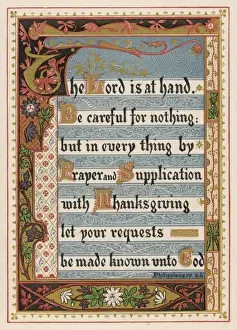 The Lord is at hand.
Be careful for nothing:
but in every thing by
Prayer and Supplication
with Thanksgiving
let your requests
be made known unto God
Philippians iv. 5.6.